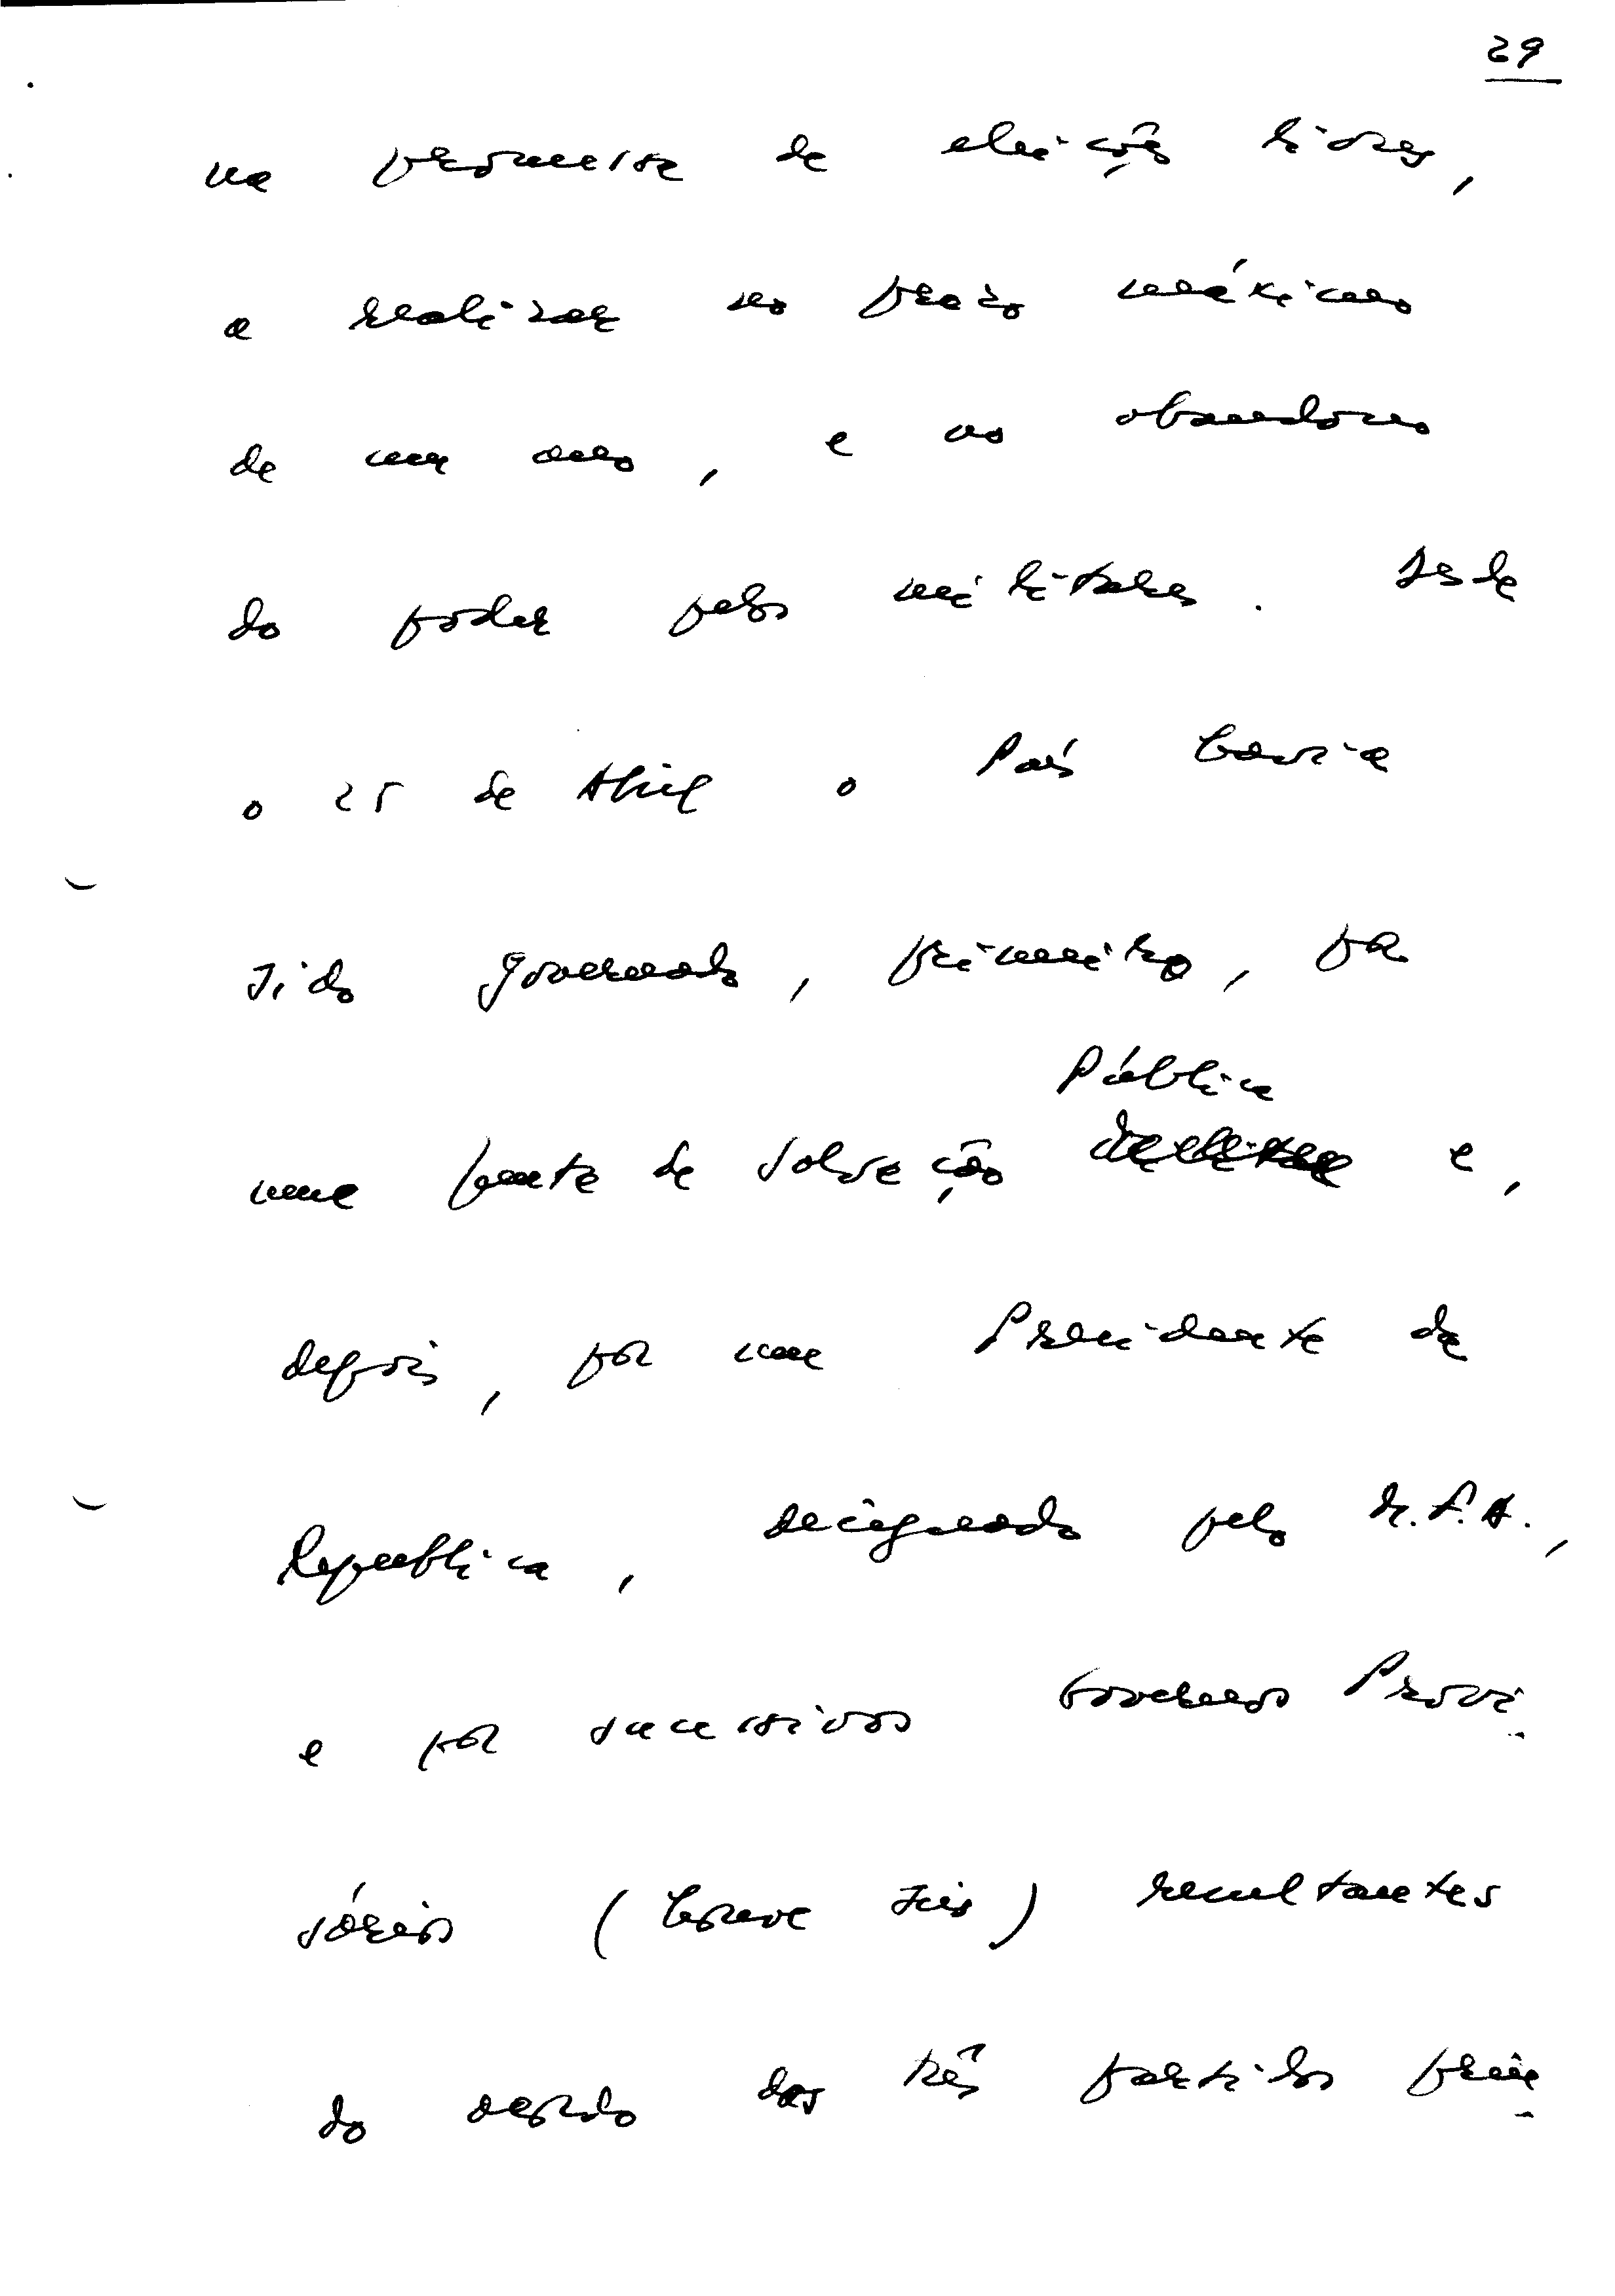 29
na promessa de eleições livres,
a realizar no prazo máximo
de um ano, e no abandono
do poder pelos militares. Desde
o 25 de Abril o País havia
sido governado, primeiro, por
Pública
uma Junta de Salvação e,
depois, por um Presidente da
República, designado pelo M.F.A.,
e por sucessivos Governos Provi-
sórios (houve seis) resultantes
do acordo dos três partidos prin-